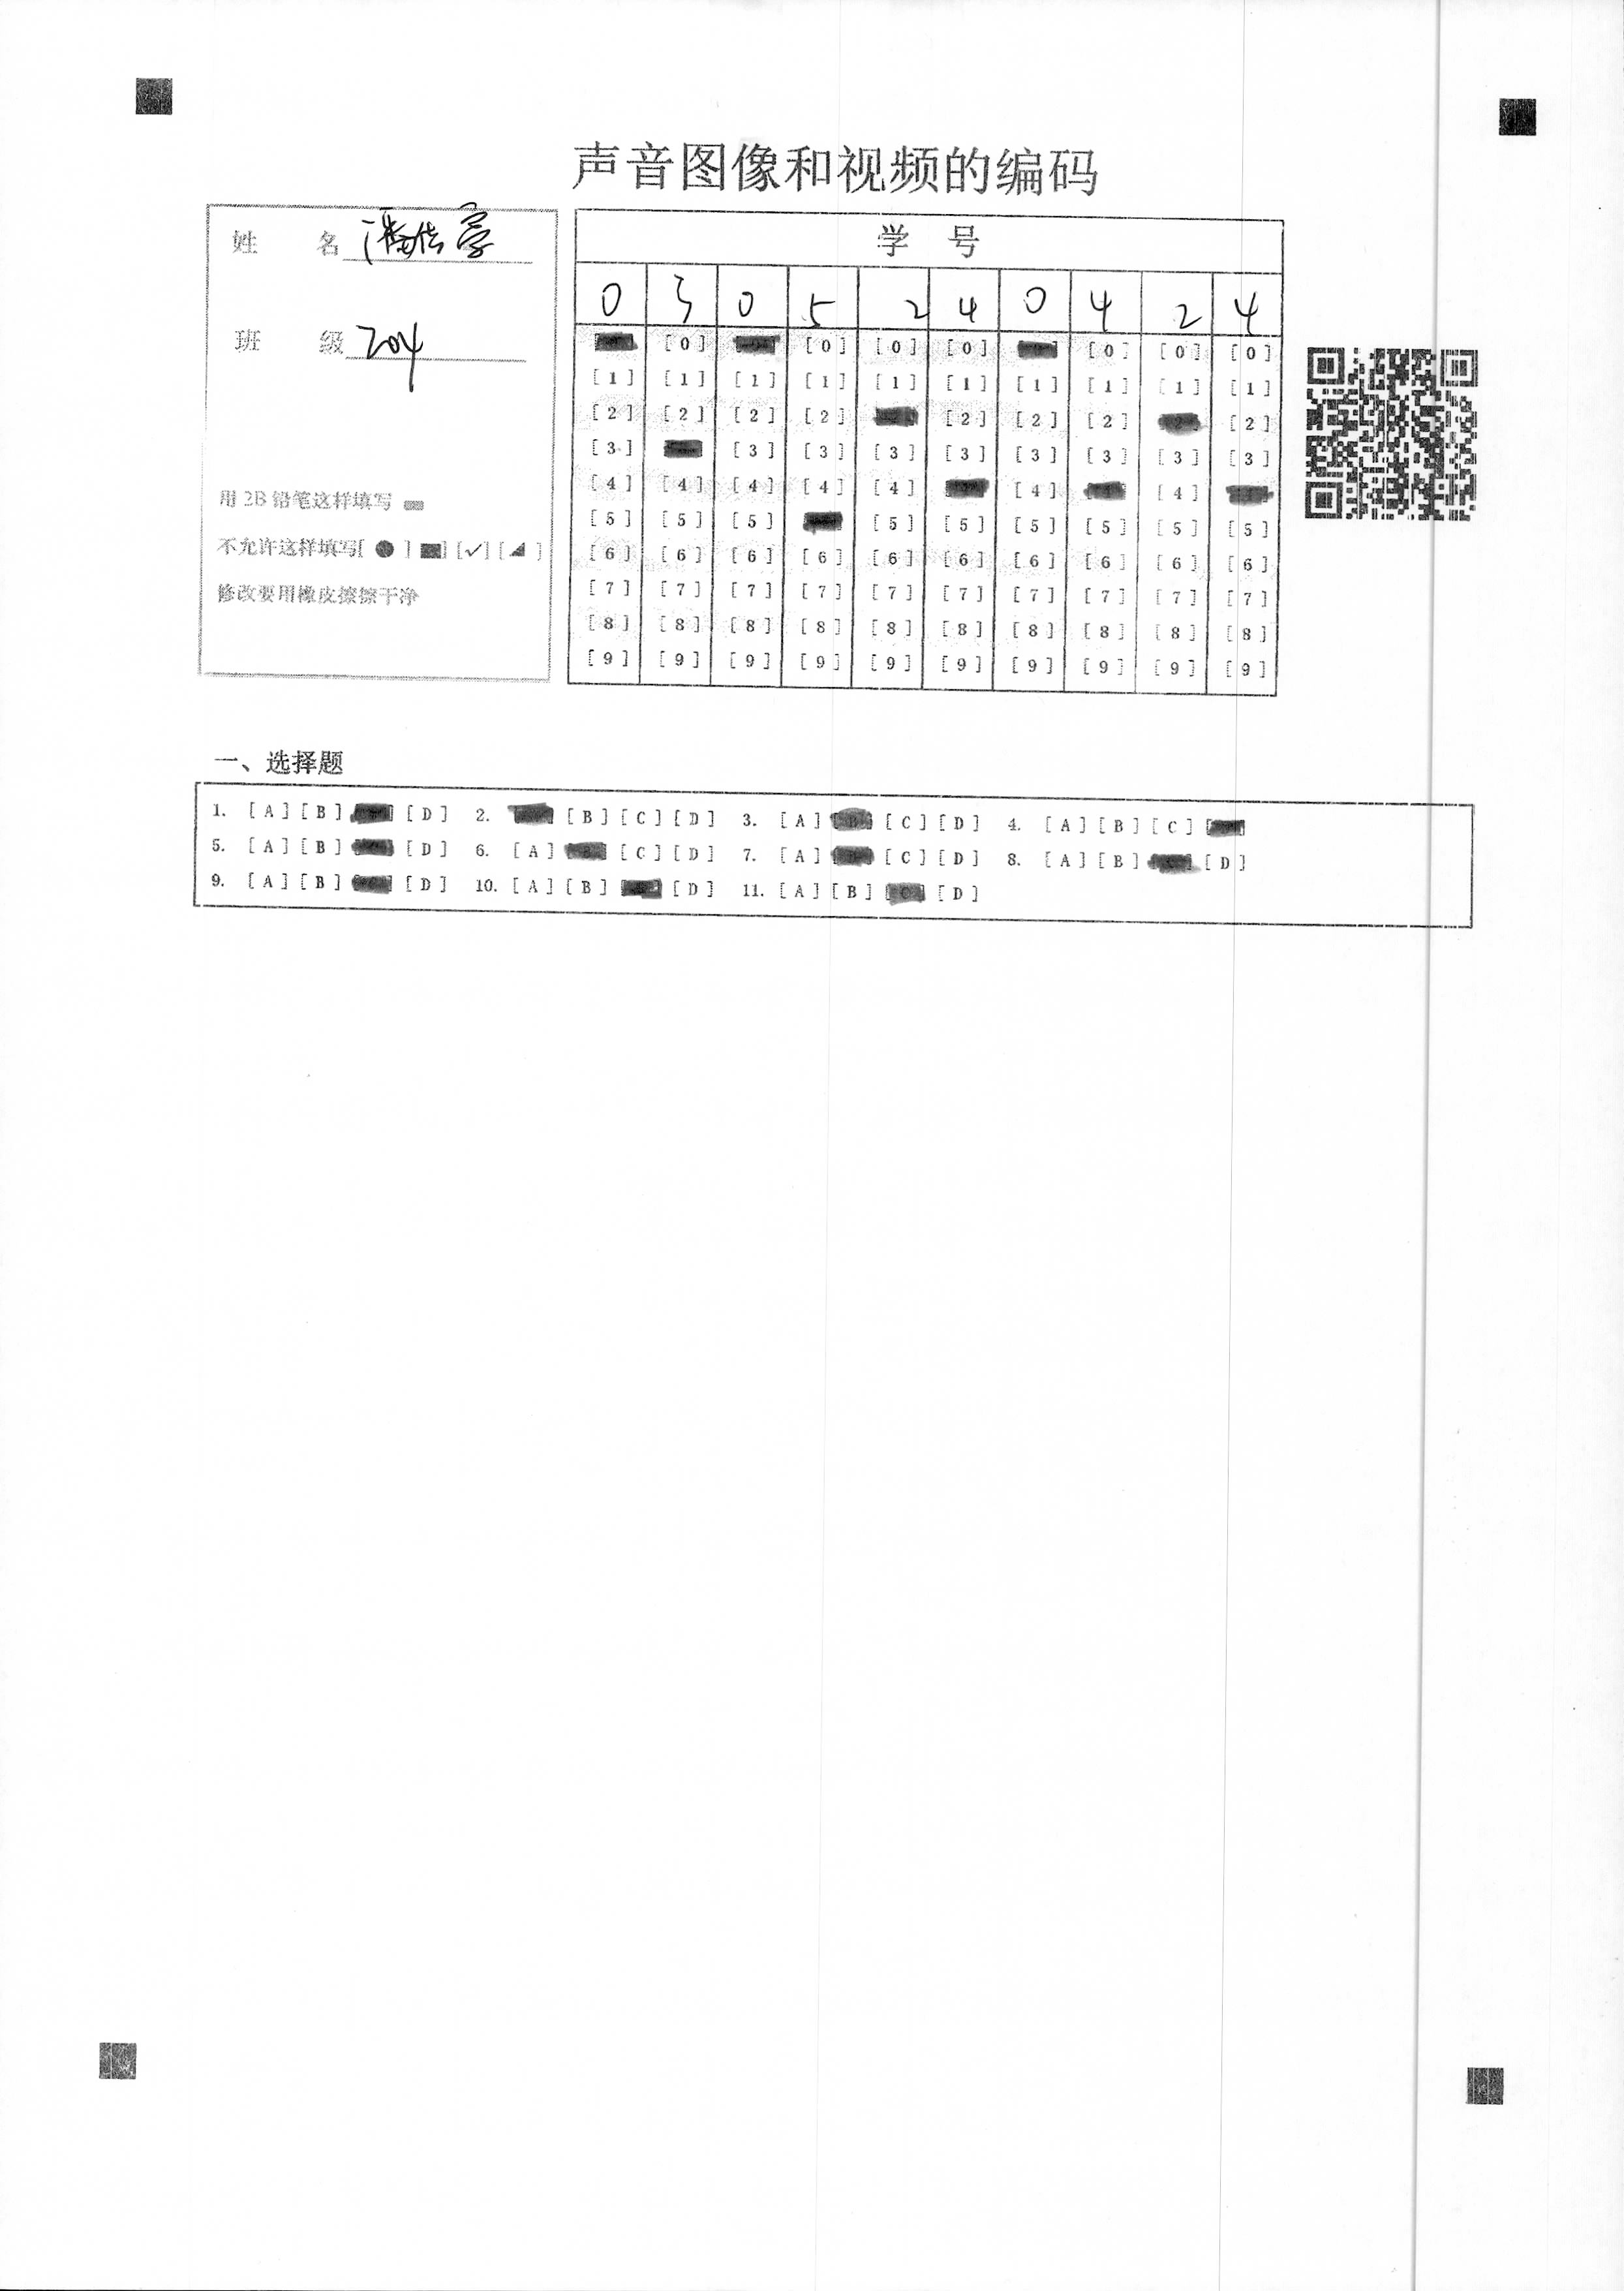 声音图像和视频的编码
姓 名
班 级 204
用 2B 铅笔这样填写
不允许这样填写[ ● ] ■] [✓] [◢ ]
修改要用橡皮擦擦干净
学 号
0 3 0 5 2 4 0 4 2 4
[0] [0] [0] [0] [0] [0] [0]
[1] [1] [1] [1] [1] [1] [1] [1] [1] [1]
[2] [2] [2] [2] [2] [2] [2] [2] [2]
[3] [3] [3] [3] [3] [3] [3] [3] [3]
[4] [4] [4] [4] [4] [4] [4]
[5] [5] [5] [5] [5] [5] [5] [5] [5]
[6] [6] [6] [6] [6] [6] [6] [6] [6] [6]
[7] [7] [7] [7] [7] [7] [7] [7] [7] [7]
[8] [8] [8] [8] [8] [8] [8] [8] [8] [8]
[9] [9] [9] [9] [9] [9] [9] [9] [9] [9]
一、选择题
1. [A] [B] [D] 2. [B] [C] [D] 3. [A] [B] [C] [D] 4. [A] [B] [C]
5. [A] [B] [D] 6. [A] [B] [C] [D] 7. [A] [C] [D] 8. [A] [B] [D]
9. [A] [B] [D] 10. [A] [B] [D] 11. [A] [B] [C] [D]